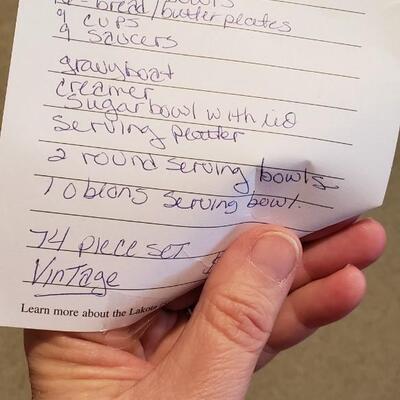 bowls
bread/butter plates
9 cups
9 saucers
gravyboat
creamer
sugar bowl with lid
serving platter
2 round serving bowls
1 oblong serving bowl.
74 piece set
Vintage
Learn more about the Lakota